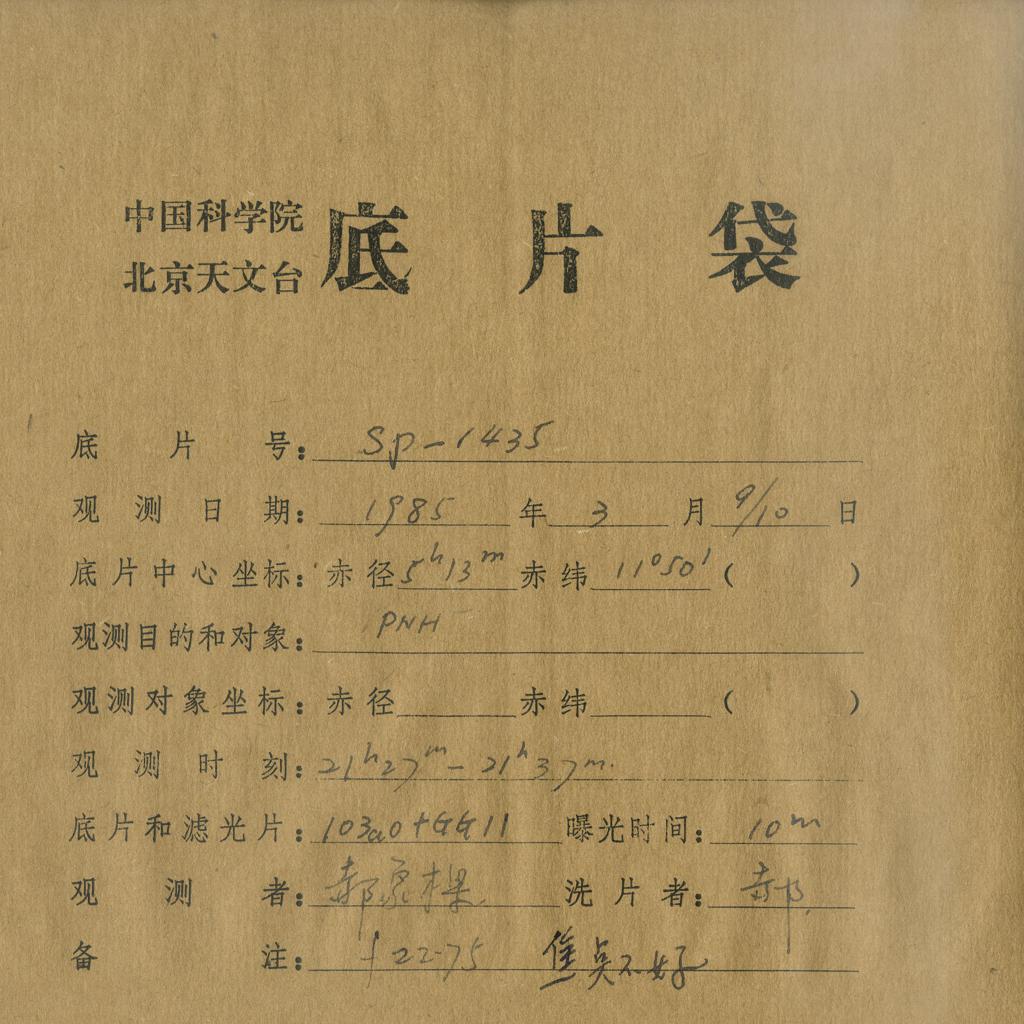 中国科学院
北京天文台
底片袋
底片号：Sp-1435
观测日期：1985年3月9/10日
底片中心坐标：赤径5h13m赤纬11°50′（ ）
观测目的和对象：PNH
观测对象坐标：赤径 赤纬 （ ）
观测时刻：21h27m-21h37m.
底片和滤光片：103a0+GG11 曝光时间：10m
观测者：郝象樑 洗片者：郝
备注：f22.75 焦点不好